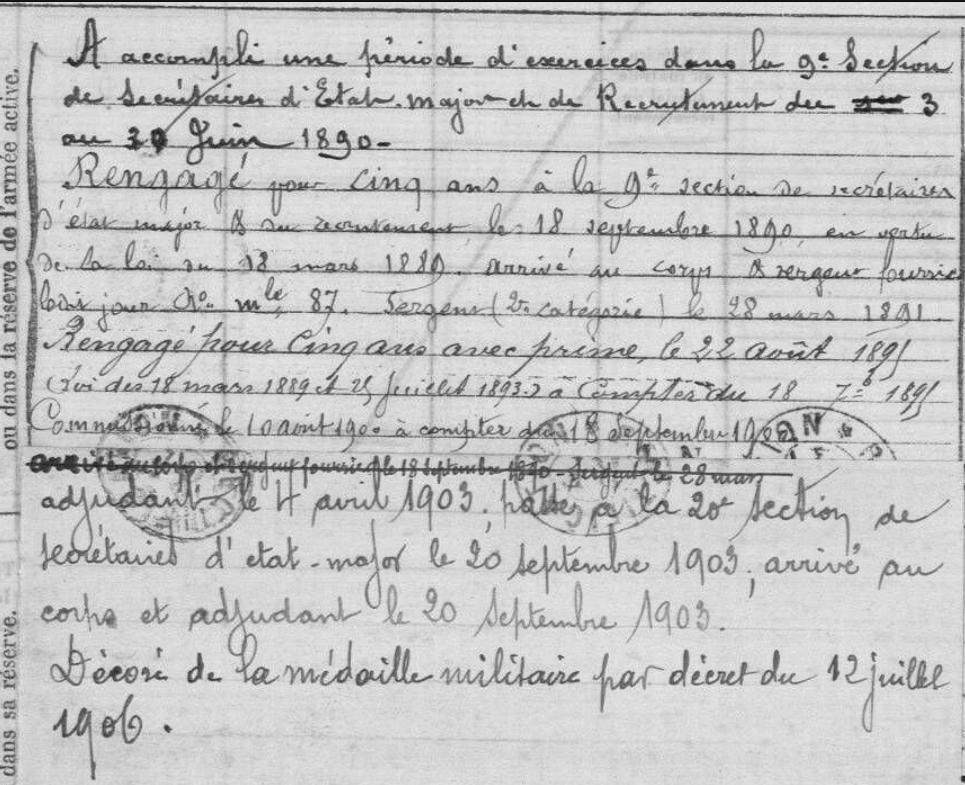 A accompli une période d'exercices dans la 9e Section
de Secrétaires d'Etat-major et de Recrutement du 3
au 30 Juin 1890-
Rengagé pour cinq ans à la 9e section de secrétaires
d'état major & du recrutement le 18 septembre 1890, en vertu
de la loi du 18 mars 1889. arrivé au corps & sergent fourrier
ledit jour No mle 87. Sergent (2e catégorie) le 28 mars 1891.
Rengagé pour Cinq ans avec prime, le 22 Août 1895
(Loi des 18 mars 1889 et 25 Juillet 1893.) à Compter du 18 7bre 1895
Commissionné le 10 août 1900 à compter du 18 Septembre 1900
arrivé au corps et sergent fourrier le 18 Septembre 1890 - Sergent le 28 mars
adjudant le 4 avril 1903, passé à la 20e section de
secrétaires d'etat-major le 20 septembre 1903, arrivé au
corps et adjudant le 20 Septembre 1903.
Décoré de la médaille militaire par décret du 12 juillet
1906.
ou dans la réserve de l'armée active.
dans sa réserve.